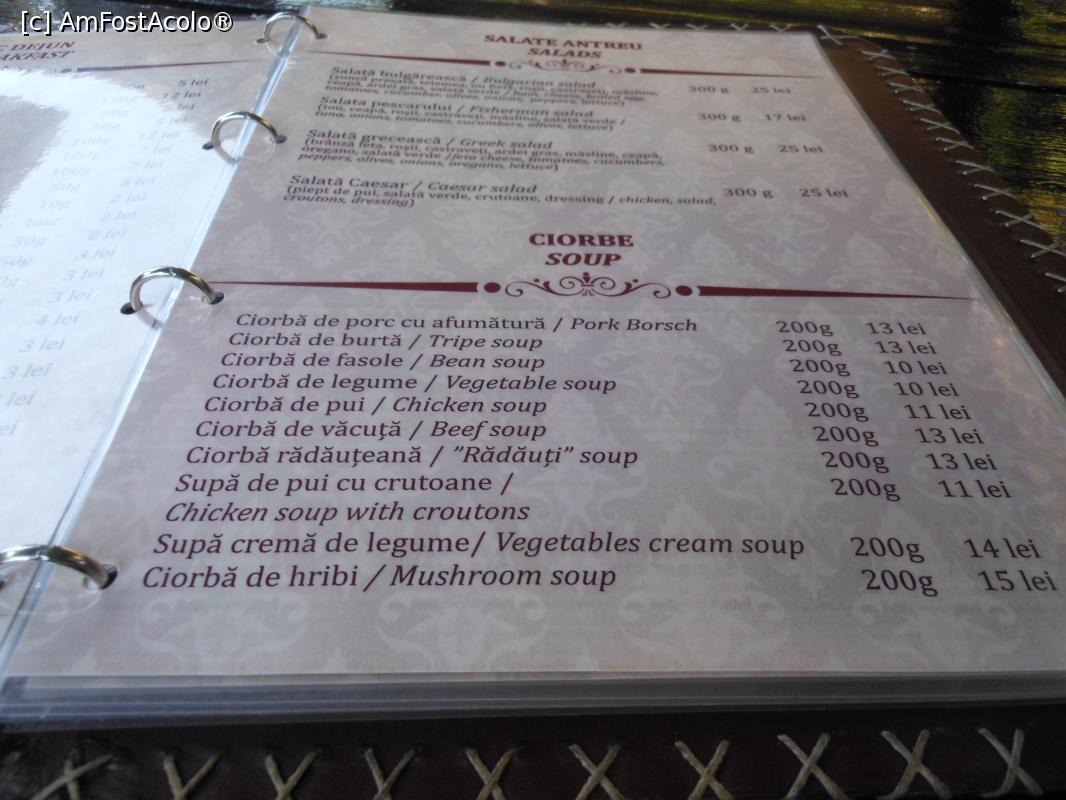 [c] AmFostAcolo®
DEJUN
5 lei
12 lei
150g
5 lei
50g
5 lei
50g
12 lei
100g
7 lei
100g
7 lei
100g
50g
5 lei
10g
2 lei
buc
2 lei
50g
2 lei
50g
3 lei
3 lei
3 lei
4 lei
3 lei
3 lei
lei
SALATE ANTREU
SALADS
Salată bulgărească / Bulgarian salad 300 g 25 lei
Salata pescarului / Fisherman salad 300 g 17 lei
(ton, ceapă, roșii, castraveți, măsline, salată verde /
tuna, onions, tomatoes, cucumbers, olives, lettuce)
Salată grecească / Greek salad 300 g 25 lei
(brânză feta, roșii, castraveți, ardei gras, măsline, ceapă,
oregano, salată verde /feta cheese, tomatoes, cucumbers,
peppers, olives, onions, oregano, lettuce)
Salată Caesar / Caesar salad 300 g 25 lei
(piept de pui, salată verde, crutoane, dressing / chicken, salad,
croutons, dressing)
CIORBE
SOUP
Ciorbă de porc cu afumătură / Pork Borsch 200g 13 lei
Ciorbă de burtă / Tripe soup 200g 13 lei
Ciorbă de fasole / Bean soup 200g 10 lei
Ciorbă de legume / Vegetable soup 200g 10 lei
Ciorbă de pui / Chicken soup 200g 11 lei
Ciorbă de văcuță / Beef soup 200g 13 lei
Ciorbă rădăuțeană / ”Rădăuți” soup 200g 13 lei
Supă de pui cu crutoane / 200g 11 lei
Chicken soup with croutons
Supă cremă de legume/ Vegetables cream soup 200g 14 lei
Ciorbă de hribi / Mushroom soup 200g 15 lei